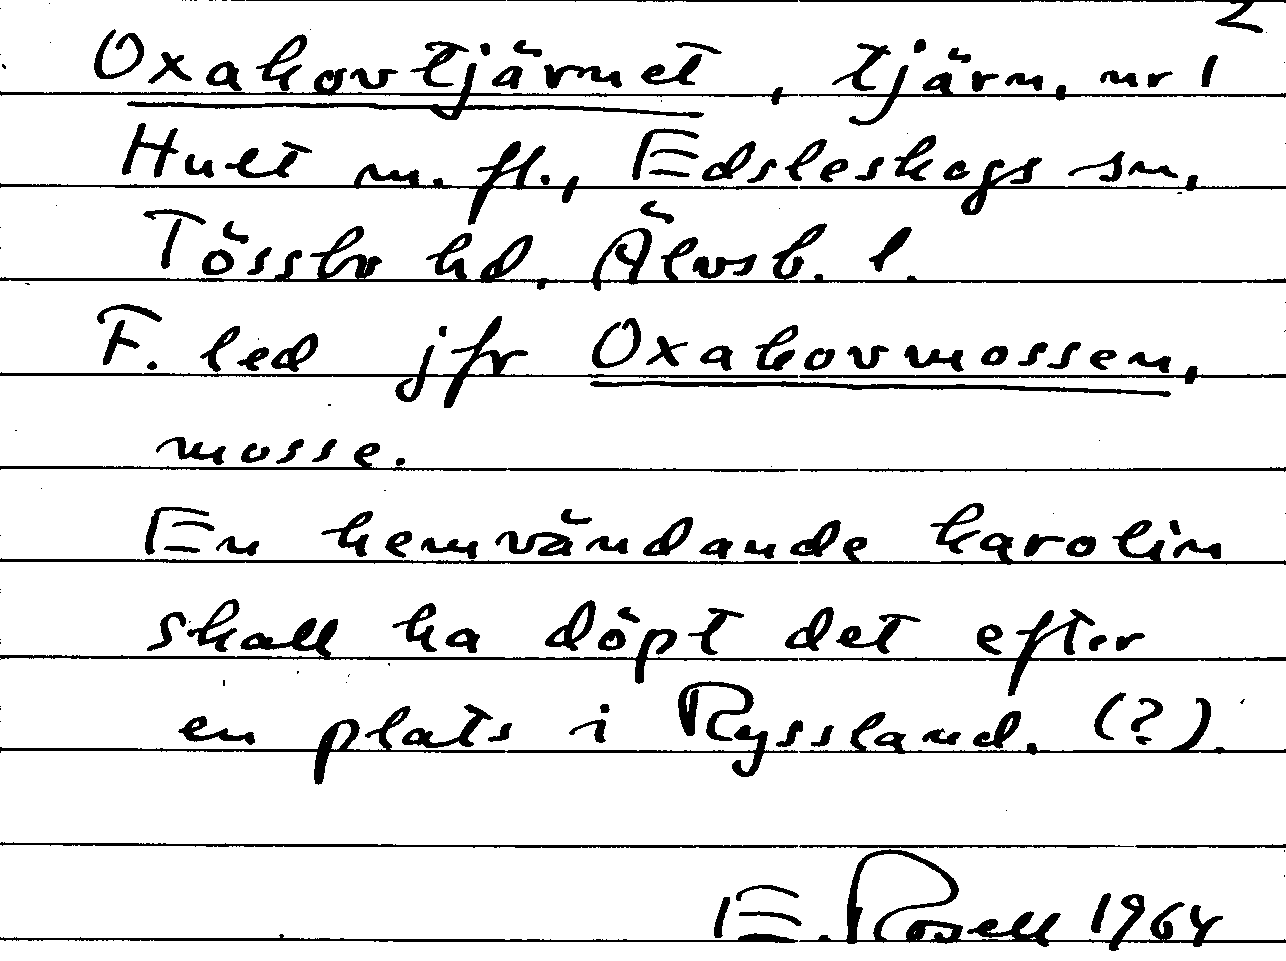 2
Oxakovtjärnet, tjärn, nr 1
Hult m. fl., Edsleskogs sn,
Tössbo hd, Älvsb. l.
F. led jfr Oxakovmossen,
mosse.
En hemvändande karolin
skall ha döpt det efter
en plats i Ryssland. (?).
E. Rosell 1964